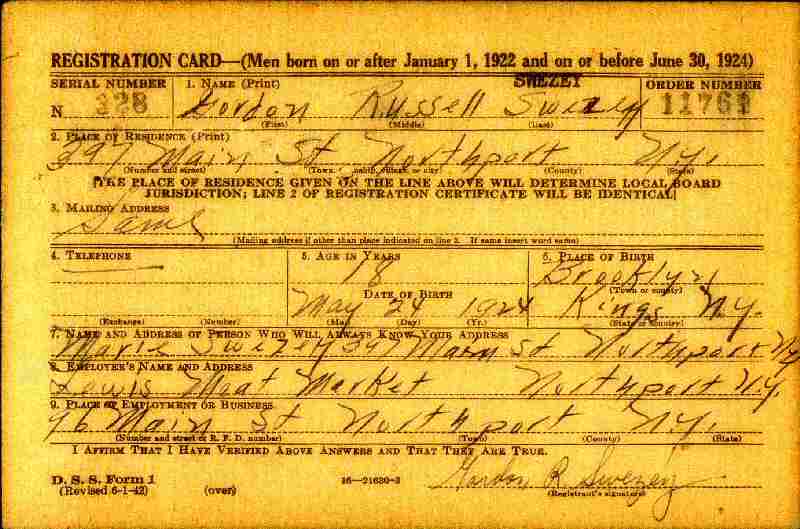 REGISTRATION CARD—(Men born on or after January 1, 1922 and on or before June 30, 1924)
SERIAL NUMBER 1. NAME (Print) SWEZEY ORDER NUMBER
N 328 Gordon Russell Swezey 11769
(First) (Middle) (Last)
2. PLACE OF RESIDENCE (Print)
Main St Northport N.Y.
(Number and street) (Town, village, or city) (County) (State)
[THE PLACE OF RESIDENCE GIVEN ON THE LINE ABOVE WILL DETERMINE LOCAL BOARD
JURISDICTION; LINE 2 OF REGISTRATION CERTIFICATE WILL BE IDENTICAL]
3. MAILING ADDRESS
Same
(Mailing address if other than place indicated on line 2. If same insert word same)
4. TELEPHONE 5. AGE IN YEARS 6. PLACE OF BIRTH
18 Brooklyn
DATE OF BIRTH (Town or county)
May 24 1924 Kings N.Y.
(Exchange) (Number) (Mo.) (Day) (Yr.) (State or country)
7. NAME AND ADDRESS OF PERSON WHO WILL ALWAYS KNOW YOUR ADDRESS
Marie Swezey Main St Northport NY
8. EMPLOYER'S NAME AND ADDRESS
Lewis Meat Market Northport N.Y.
9. PLACE OF EMPLOYMENT OR BUSINESS
Main St Northport N.Y.
(Number and street or R. F. D. number) (Town) (County) (State)
I AFFIRM THAT I HAVE VERIFIED ABOVE ANSWERS AND THAT THEY ARE TRUE.
D. S. S. Form 1
(Revised 6-1-42) (over) 16—21630-2 Gordon R Swezey
(Registrant's signature)